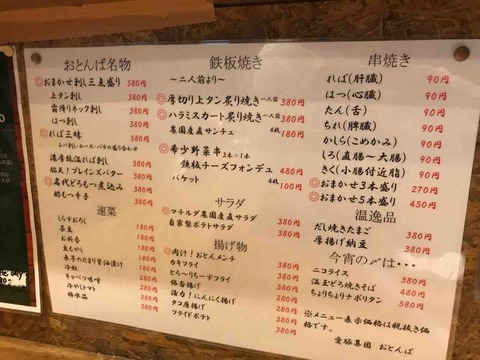 おとんば名物
◎おまかせ刺し三点盛り 580円
上タン刺し 380円
霜降りネック刺し 380円
はつ刺し 380円
◎れば三昧 580円
濃厚低温れば刺し 380円
脳天!ブレインズバター 380円
◎名代どろもつ煮込み 380円
速菜
しらすおろし
冷奴
キャベツ味噌 280円
冷やしトマト 280円
鉄板焼き
~二人前より~
◎厚切り上タン炙り焼き 一人前 380円
◎ハラミスカート炙り焼き 一人前 380円
農園産直サンチュ 4枚 180円
◎希少野菜串 3本~1本
鉄板チーズフォンデュ 480円
バケット 4枚 100円
サラダ
◎マチルダ農園産直サラダ 380円
自家製ポテトサラダ 380円
揚げ物
◎肉汁!おとんメンチ
カキフライ 380円
とろ~りちーずフライ 350円
銀杏揚げ
活力!にんにく揚げ 280円
タコ唐揚げ 280円
フライドポテト 380円
串焼き
れば(肝臓) 90円
はつ(心臓) 90円
たん(舌) 90円
ちれ(脾臓) 90円
かしら(こめかみ) 90円
しろ(直腸~大腸) 90円
きく(小腸付近脂) 90円
◎おまかせ3本盛り 270円
◎おまかせ5本盛り 450円
温逸品
だし焼きたまご 380円
厚揚げ納豆 380円
今宵の〆は…
ニコライス 380円
温玉どろ焼きそば 480円
ちょりちょりナポリタン 580円
※メニュー表示価格は税抜き価格です。
愛豚集団 おとんば